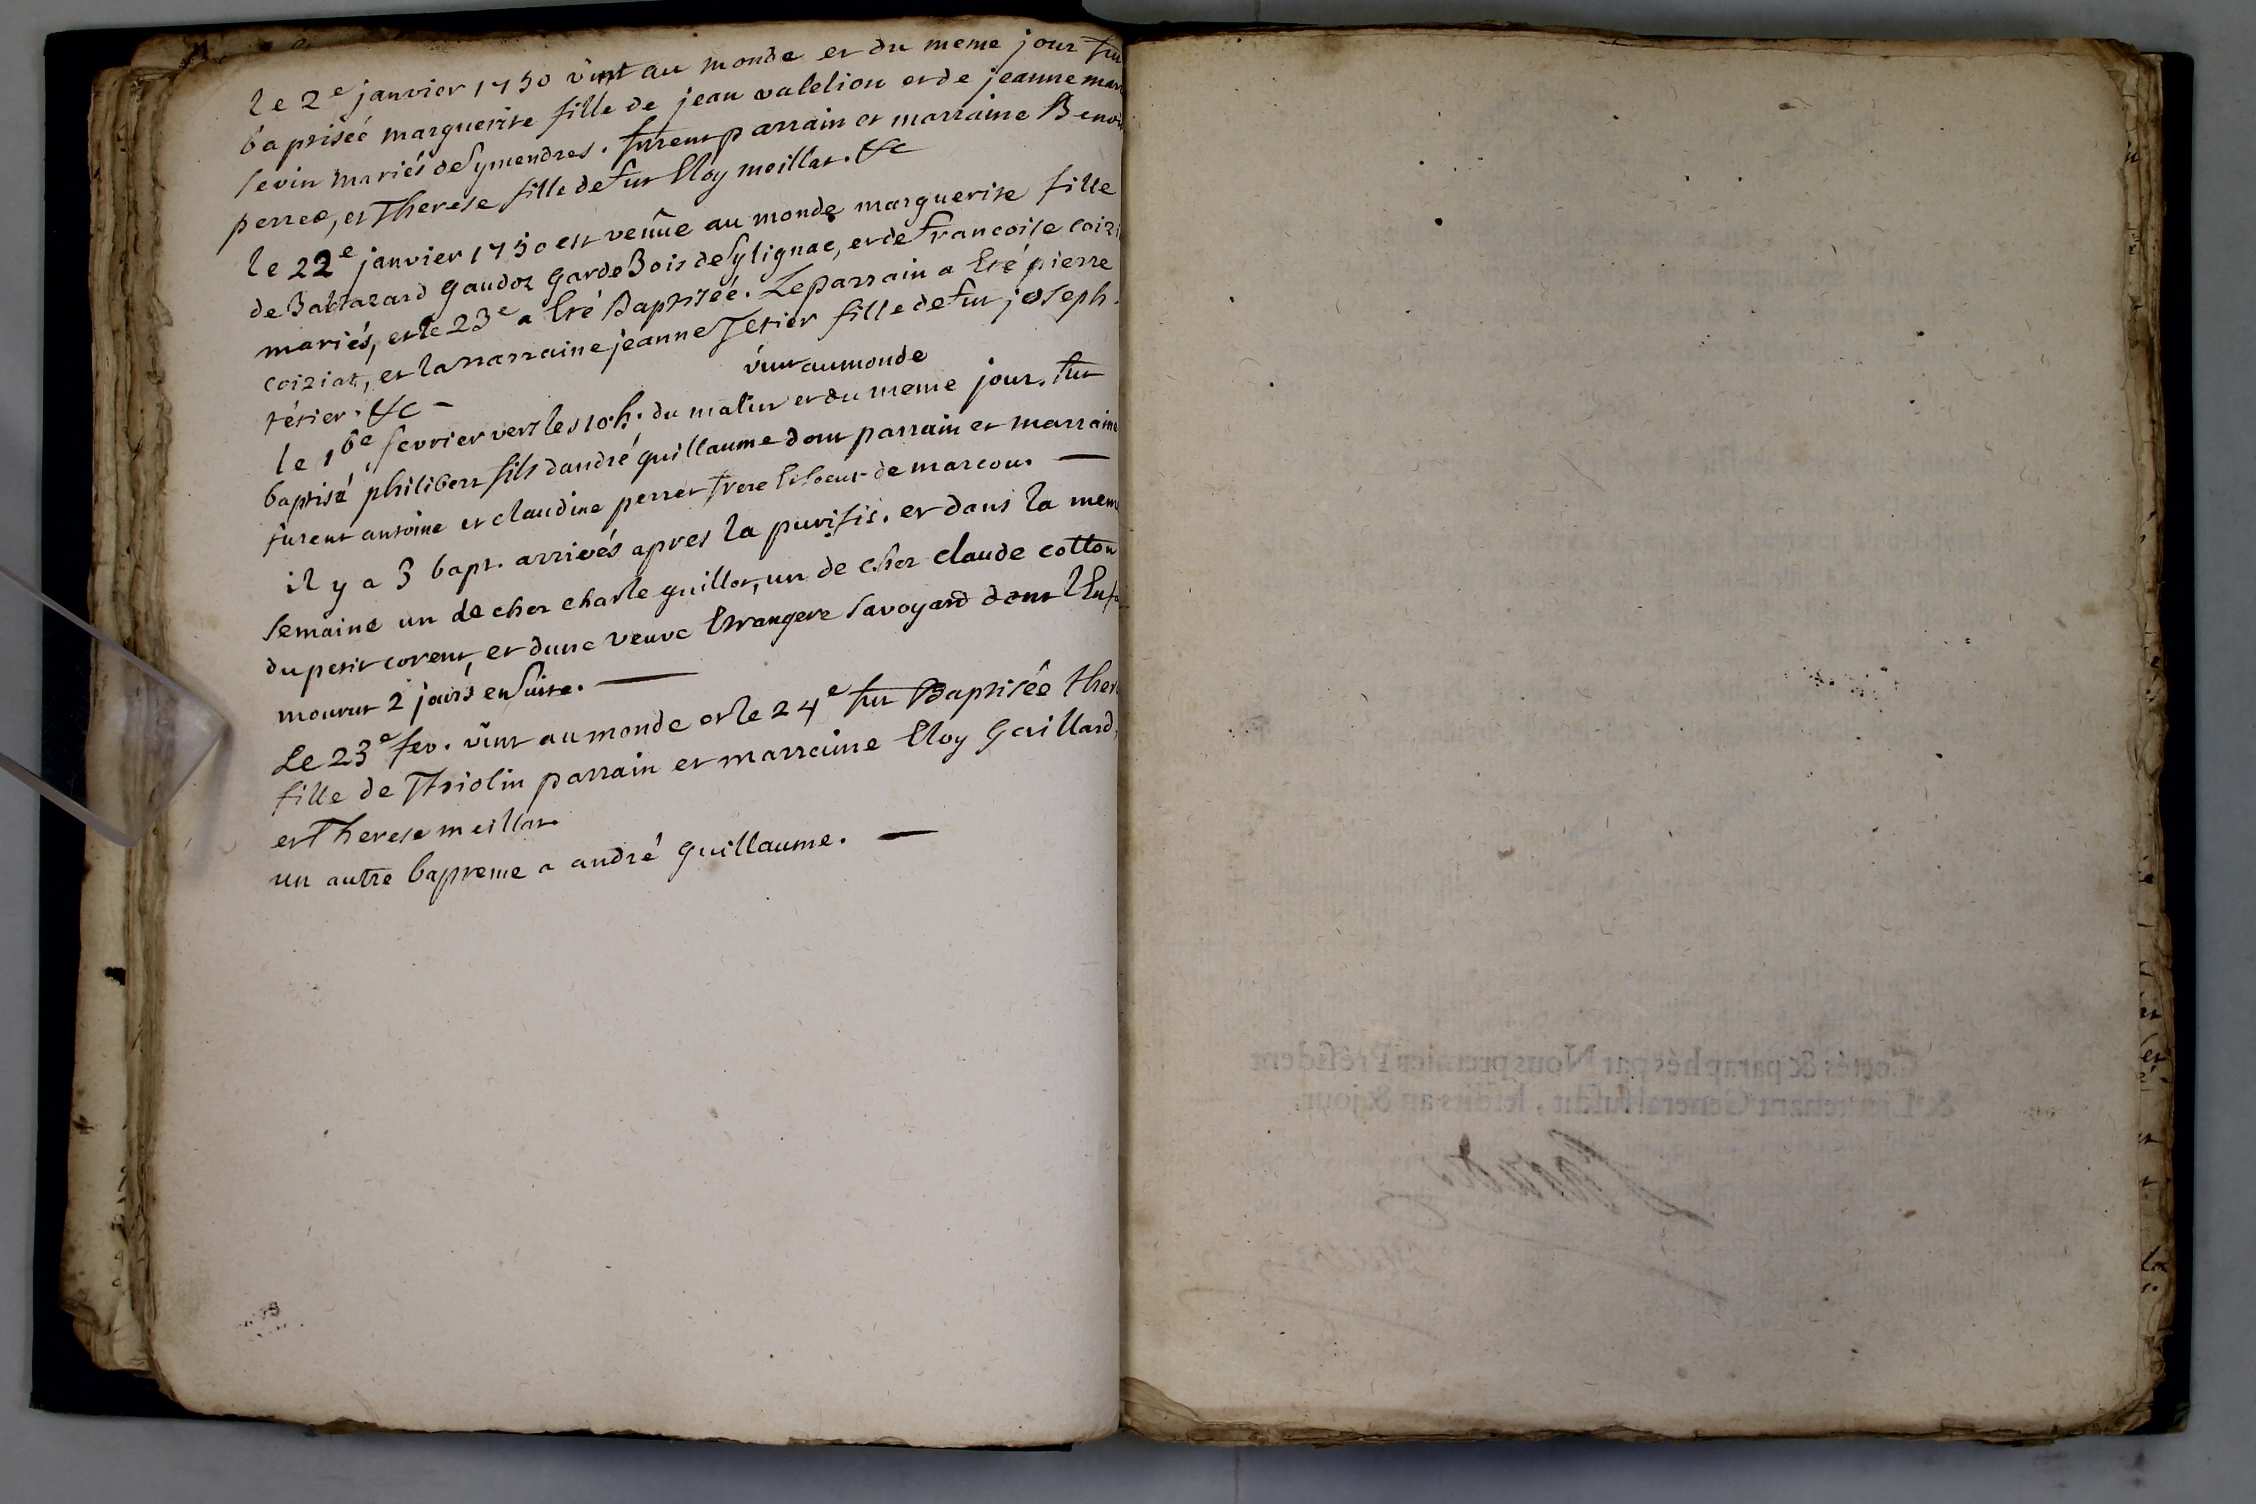 le 2e janvier 1750 vint au monde et du meme jour fut
baptiséé marguerite fille de jean valelion et de jeanne mar
sevin mariés de symendres. furent parrain et marraine Benoi
perret, et Therese fille de fut Eloy meillat. &c
le 22e janvier 1750 est venûe au monde marguerite fille
de Baltazard gaudoz garde Bois de sylignac, et de francoise coizi
mariés, et le 23e a Eté Baptiséé. Le parrain a Eté pierre
coiziat, et la marraine jeanne Tetier fille de fut joseph.
tétier. &c -
vint au monde
le 16e fevrier vers les 10 h. du matin et du meme jour. fut
baptisé philibert fils dandré guillaume dont parrain et marraine
furent antoine et claudine perret frere Et soeur de marcou. —
il y a 3 bapt. arrivés apres la purifis. et dans la meme
semaine un de chez charle guillot, un de chez claude cotton
du petit corent, et dune veuve Etrangere savoyard dont lEnfa
mourut 2 jours ensuite. —
Le 23e fev. vint au monde et le 24e fut Baptisée there
fille de Thiolin parrain et marraine Eloy Gaillard,
et Therese meillat.
un autre bapteme a andré guillaume. —
Cottés & paraphés par Nous premier Président
& Lieutenant General susdit, lesdits an & jour.